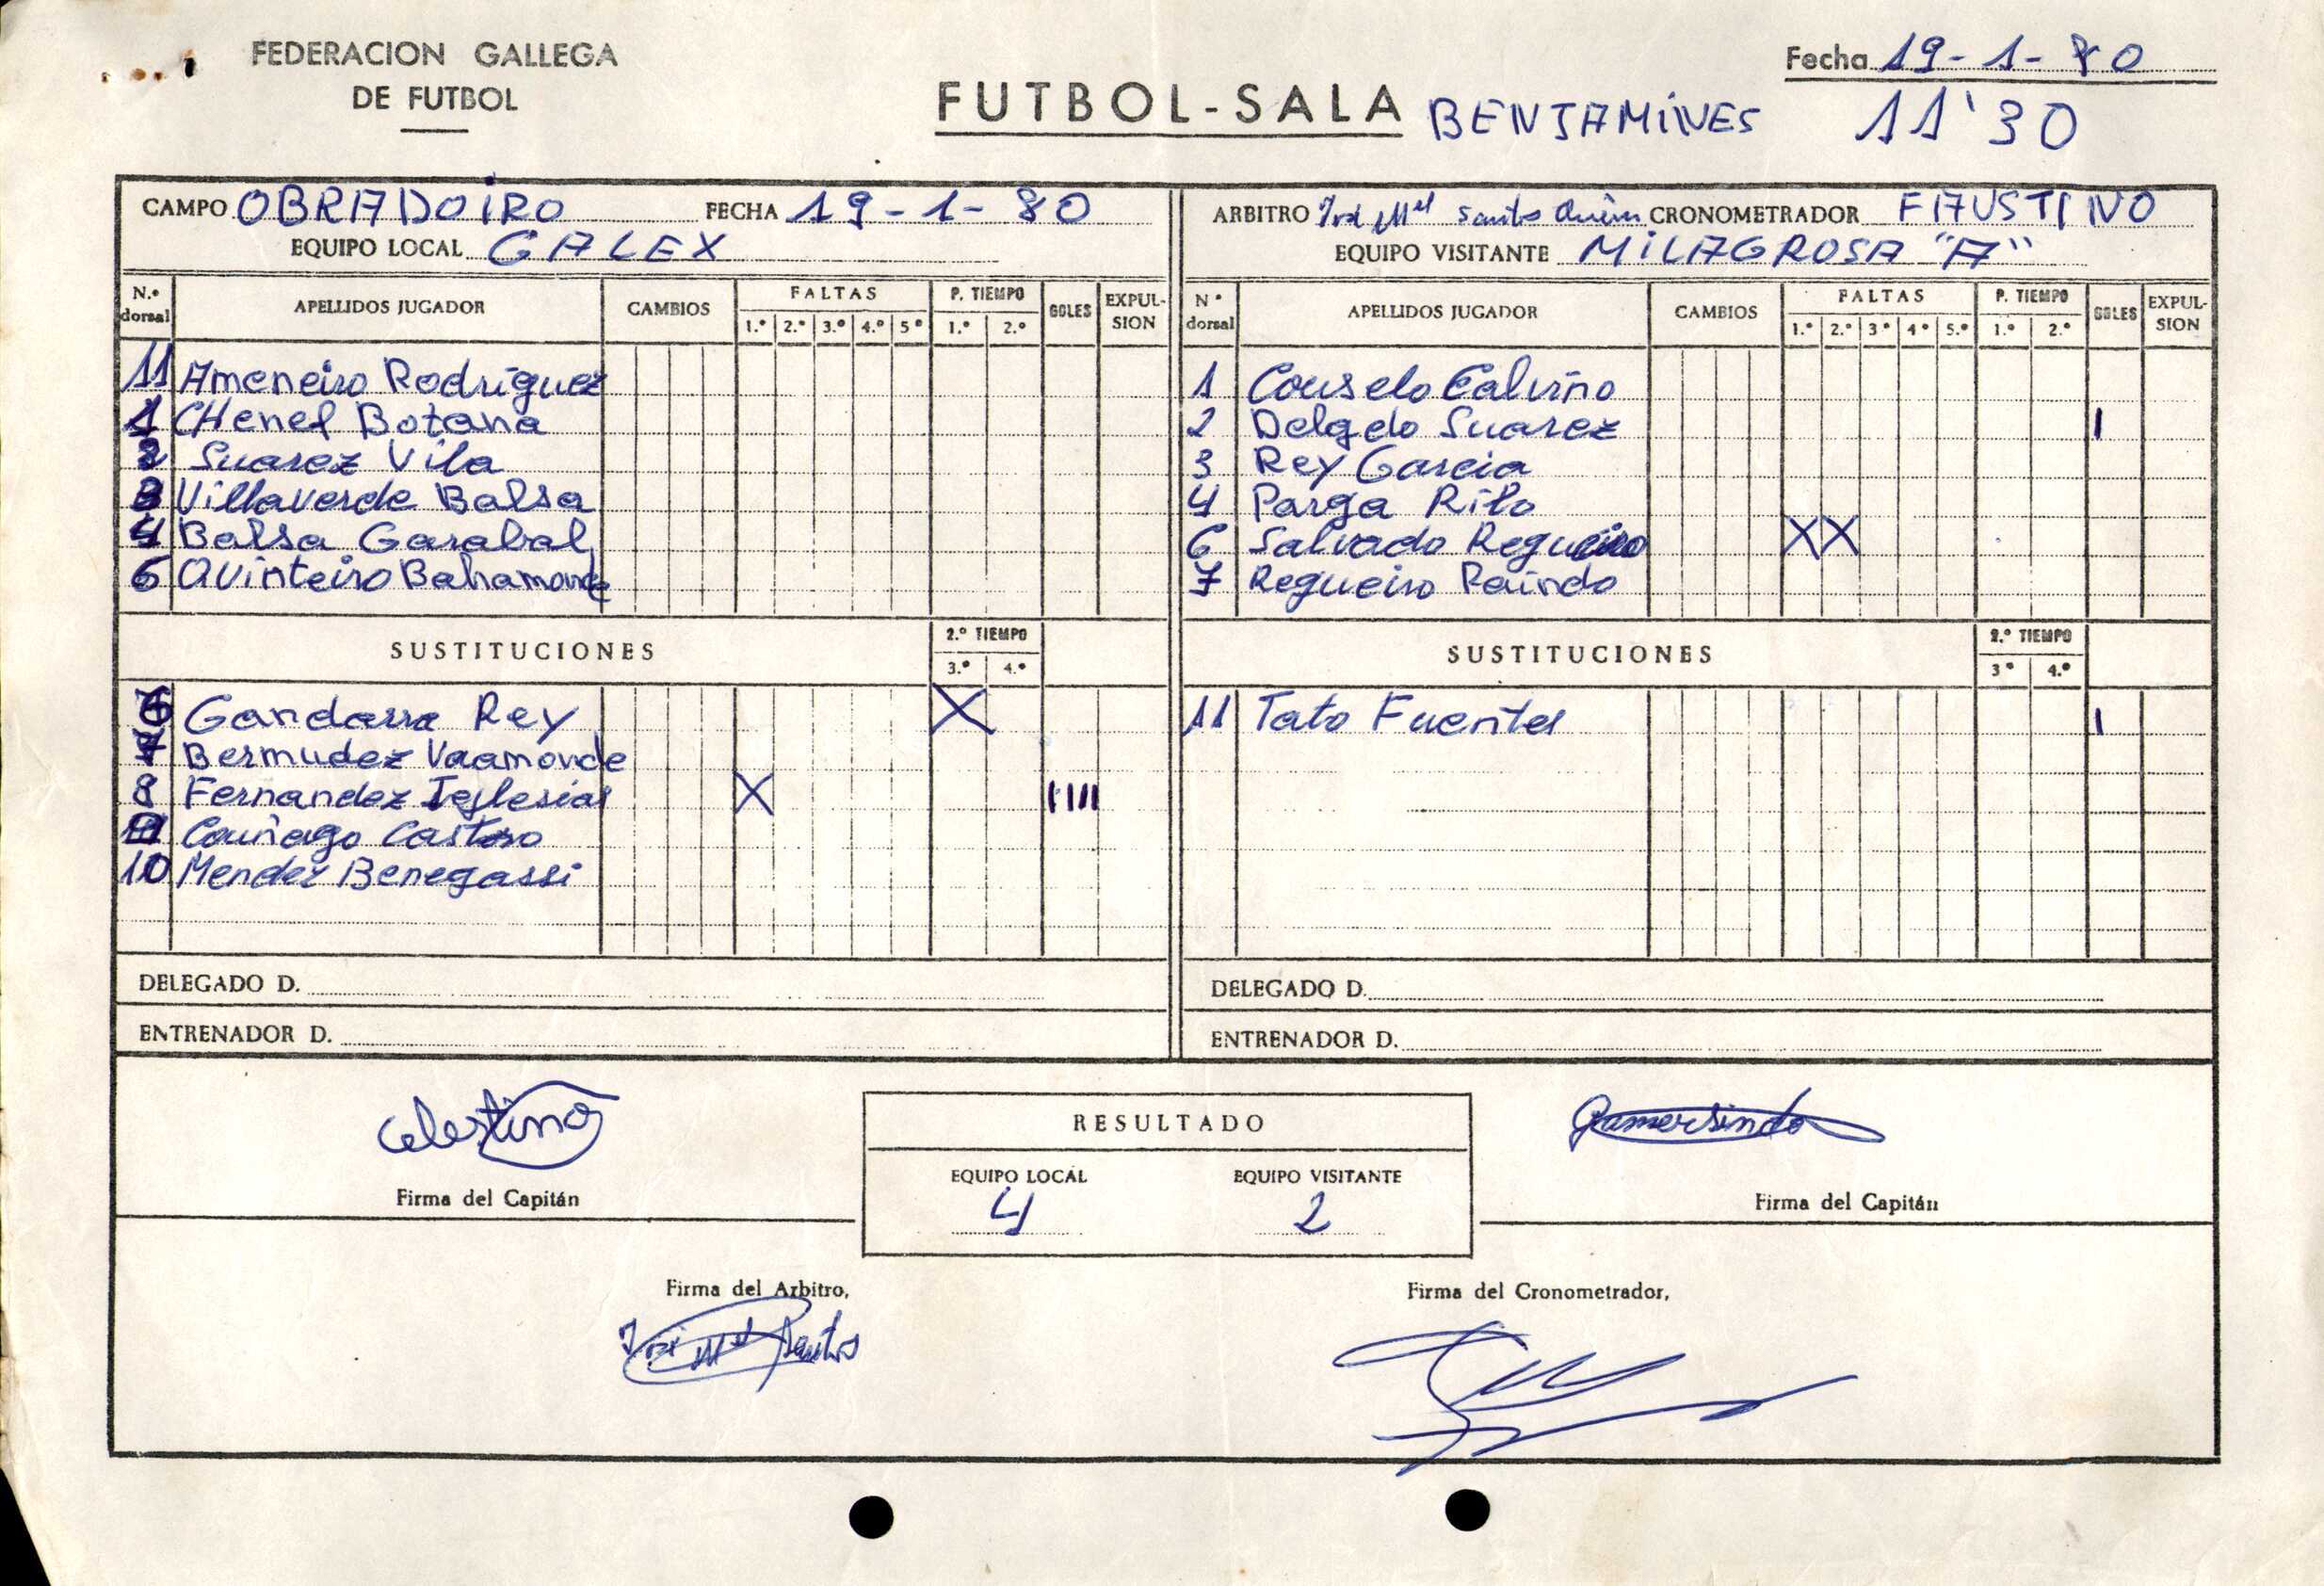 FEDERACION GALLEGA
DE FUTBOL
Fecha 19-1-80
FUTBOL-SALA BENJAMINES 11'30
CAMPO OBRADOIRO FECHA 19-1-80
EQUIPO LOCAL GALEX
N.º dorsal APELLIDOS JUGADOR CAMBIOS FALTAS P. TIEMPO GOLES EXPULSION
1.º 2.º 3.º 4.º 5º 1.º 2.º
11 Ameneiro Rodriguez
1 CHenel Botana
2 Suarez Vila
3 Villaverde Balsa
4 Balsa Garabal
6 Quinteiro Bahamonde
SUSTITUCIONES 2.º TIEMPO
3.º 4.º
Gandarra Rey X
7 Bermudez Vaamonde
8 Fernandez Iglesias X IIII
Castro
10 Mendez Benegassi
DELEGADO D.
ENTRENADOR D.
ARBITRO José Mel Santos CRONOMETRADOR FAUSTINO
EQUIPO VISITANTE MILAGROSA "A"
Nº dorsal APELLIDOS JUGADOR CAMBIOS FALTAS P. TIEMPO GOLES EXPULSION
1.º 2.º 3º 4º 5.º 1.º 2.º
1 Couselo Calviño
2 Delgado Suarez I
3 Rey Garcia
4 Parga Rilo
6 Salvado Regueiro XX
7 Regueiro
SUSTITUCIONES 2.º TIEMPO
3º 4.º
11 Tato Fuentes I
DELEGADO D.
ENTRENADOR D.
Celestino
Firma del Capitán
RESULTADO
EQUIPO LOCAL EQUIPO VISITANTE
4 2
Gumersindo
Firma del Capitán
Firma del Arbitro,
José Mel Santos
Firma del Cronometrador,